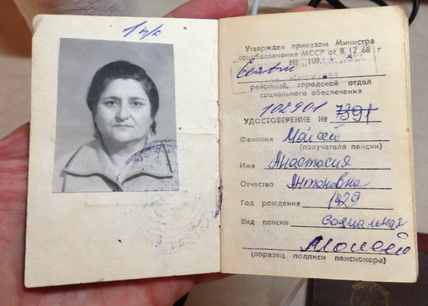 1 п/с
Утвержден приказом Министра
соцобеспечения МССР от 8.12.68 г
№ 109.
районный, городской отдел
социального обеспечения
102901
УДОСТОВЕРЕНИЕ № 7391
Фамилия Мойсей
(получателя пенсии)
Имя Анастасия
Отчество Антоновна
Год рождения 1929
Вид пенсии Социальная
(образец подписи пенсионера)